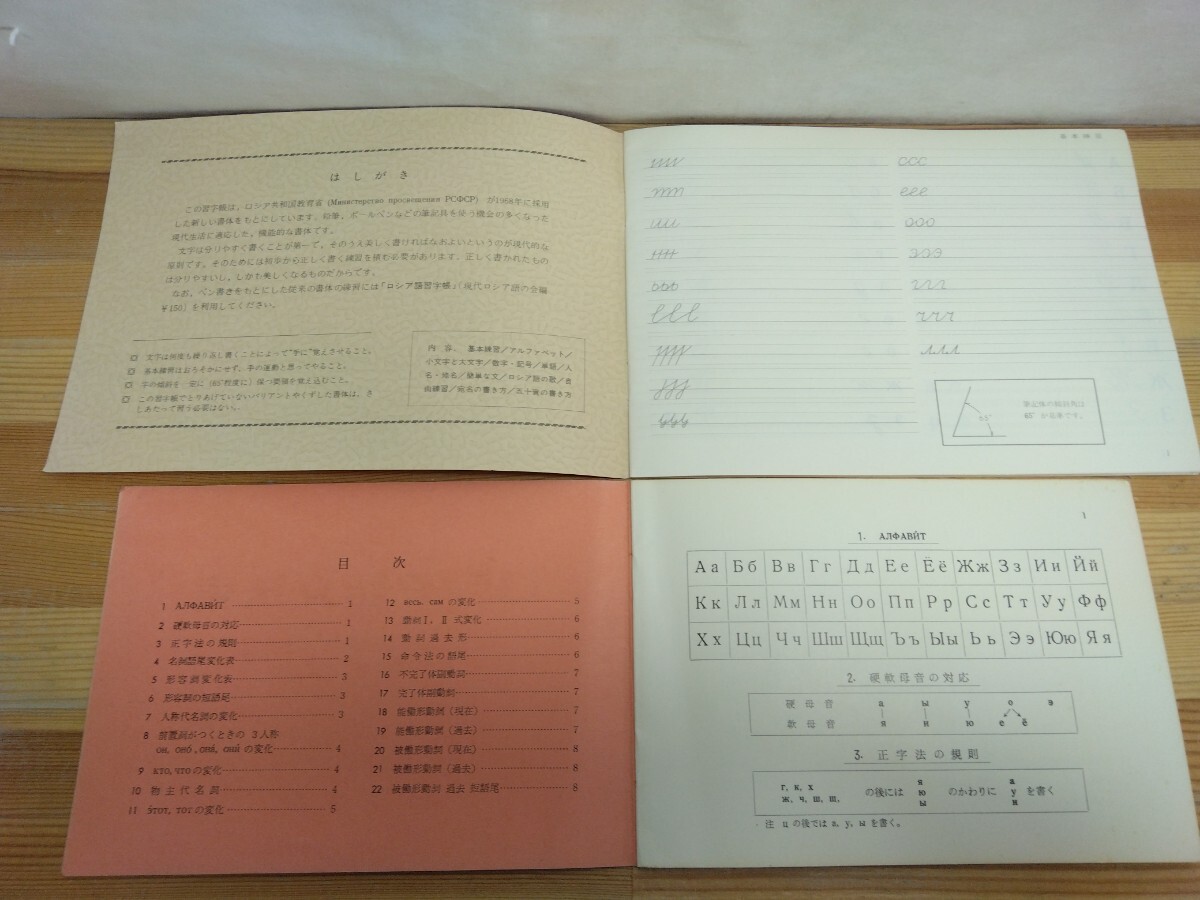 はしがき
この習字帳は、ロシア共和国教育省 (Министерство просвещения РСФСР) が1968年に採用
した新しい書体をもとにしています。鉛筆、ボールペンなどの筆記具を使う機会の多くなった
現代生活に適応した、機能的な書体です。
文字は分りやすく書くことが第一で、そのうえ美しく書ければなおよいというのが現代的な
原則です。そのためには初歩から正しく書く練習を積む必要があります。正しく書かれたもの
は分りやすいし、しかも美しくなるものだからです。
なお、ペン書きをもとにした従来の書体の練習には「ロシア語習字帳」(現代ロシア語の会編
¥150) を利用してください。
□ 文字は何度も繰り返し書くことによって"手に"覚えさせること。
□ 基本練習はおろそかにせず、手の運動と思ってやること。
□ 字の傾斜を一定に (65°程度に) 保つ要領を覚え込むこと。
□ この習字帳でとりあげていないバリアントやくずした書体は、さ
しあたって習う必要はない。
内容。基本練習/アルファベット/
小文字と大文字/数字・記号/単語/人
名・地名/簡単な文/ロシア語の歌/自
由練習/宛名の書き方/五十音の書き方
基本練習
ссс
еее
ооо
эээ
65°
筆記体の傾斜角は
65° が基準です。
1
目 次
1 АЛФАВИ́Т 1
2 硬軟母音の対応 1
3 正字法の規則 1
4 名詞語尾変化表 2
5 形容詞変化表 3
6 形容詞の短語尾 3
7 人称代名詞の変化 3
8 前置詞がつくときの 3人称
он, оно́, она́, они́ の変化 4
9 кто, что の変化 4
10 物主代名詞 4
11 э́тот, тот の変化 5
12 весь, сам の変化 5
13 動詞 I, II 式変化 6
14 動詞過去形 6
15 命令法の語尾 6
16 不完了体副動詞 7
17 完了体副動詞 7
18 能働形動詞 (現在) 7
19 能働形動詞 (過去) 7
20 被働形動詞 (現在) 8
21 被働形動詞 (過去) 8
22 被働形動詞 過去 短語尾 8
1
1. АЛФАВИ́Т
Аа Бб Вв Гг Дд Ее Ёё Жж Зз Ии Йй
Кк Лл Мм Нн Оо Пп Рр Сс Тт Уу Фф
Хх Цц Чч Шш Щщ Ъъ Ыы Ьь Ээ Юю Яя
2. 硬軟母音の対応
硬母音 а ы у о э
軟母音 я и ю е ё
3. 正字法の規則
г, к, х
ж, ч, ш, щ,
の後には
я
ю
ы
のかわりに
а
у
и
を書く
注 ц の後では а, у, ы を書く。